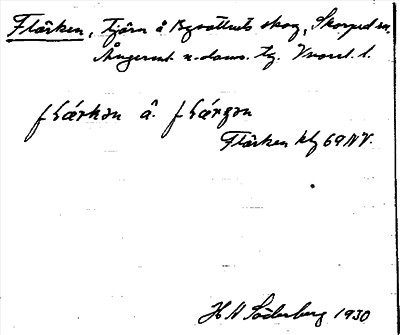 Flärken, tjärn å Byvattnets skog, Skorped sn.
Ångerml. n. doms. tg. Vnorrl. l.
flárkən å. flárgən
Flärken kbl 69 NV.
H N Söderberg 1930